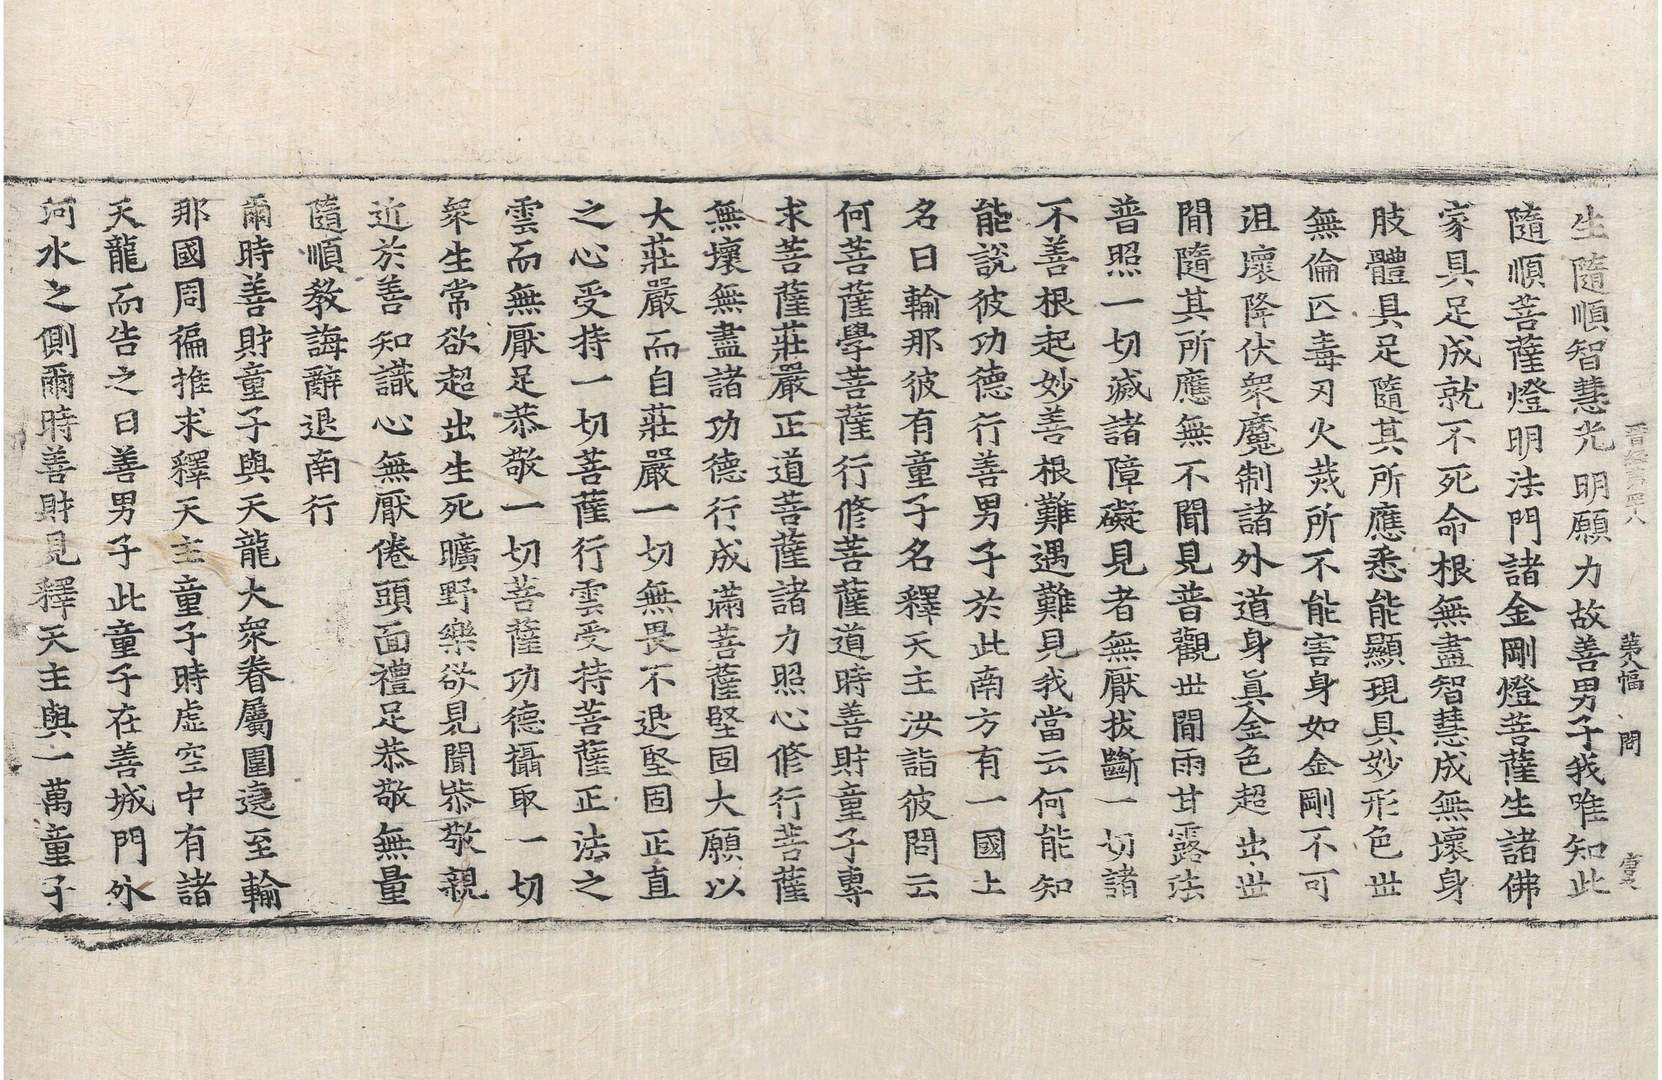 晋經第四十八 第八幅 問
生隨順智慧光明願力故善男子我唯知此
隨順菩薩燈明法門諸金剛燈菩薩生諸佛
家具足成就不死命根無盡智慧成無壞身
肢體具足隨其所應悉能顯現具妙形色世
無倫匹毒刃火烖所不能害身如金剛不可
沮壞降伏衆魔制諸外道身眞金色超出世
間隨其所應無不聞見普觀世間雨甘露法
普照一切滅諸障礙見者無厭拔斷一切諸
不善根起妙善根難遇難見我當云何能知
能說彼功德行善男子於此南方有一國土
名曰輪那彼有童子名釋天主汝詣彼問云
何菩薩學菩薩行修菩薩道時善財童子專
求菩薩莊嚴正道菩薩諸力照心修行菩薩
無壞無盡諸功德行成滿菩薩堅固大願以
大莊嚴而自莊嚴一切無畏不退堅固正直
之心受持一切菩薩行雲受持菩薩正法之
雲而無厭足恭敬一切菩薩功德攝取一切
衆生常欲超出生死曠野樂欲見聞恭敬親
近於善知識心無厭倦頭面禮足恭敬無量
隨順敎誨辭退南行
爾時善財童子與天龍大衆眷屬圍遶至輪
那國周徧推求釋天主童子時虛空中有諸
天龍而告之曰善男子此童子在善城門外
河水之側爾時善財見釋天主與一萬童子